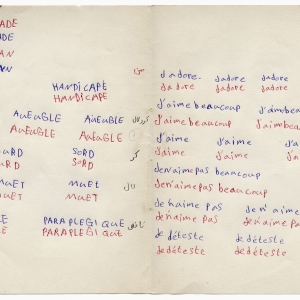 ADE
ADE
AN
AN
HANDICAPE
HANDICAPE
AUEUGLE AUEUGLE
AUEUGLE AUEUGLE
OURD SORD
OURD SORD
MUET MUET لال
MUET MUET
PARAPLEGIQUE
PARAPLEGIQUE
J'adore. J'adore J'adore
J'adore J'adore J'adore
J'aime beaucoup J'aime beaucoup
J'aime beaucoup J'aime beaucoup
J'aime J'aime J'aime
J'aime J'aime J'aime
Jen'aime pas beaucoup
Jen'aime pas beaucoup
Je n'aime pas Je n'aime
Je n'aime pas Je n'aime pas
Je déteste Je déteste
Je déteste Je déteste